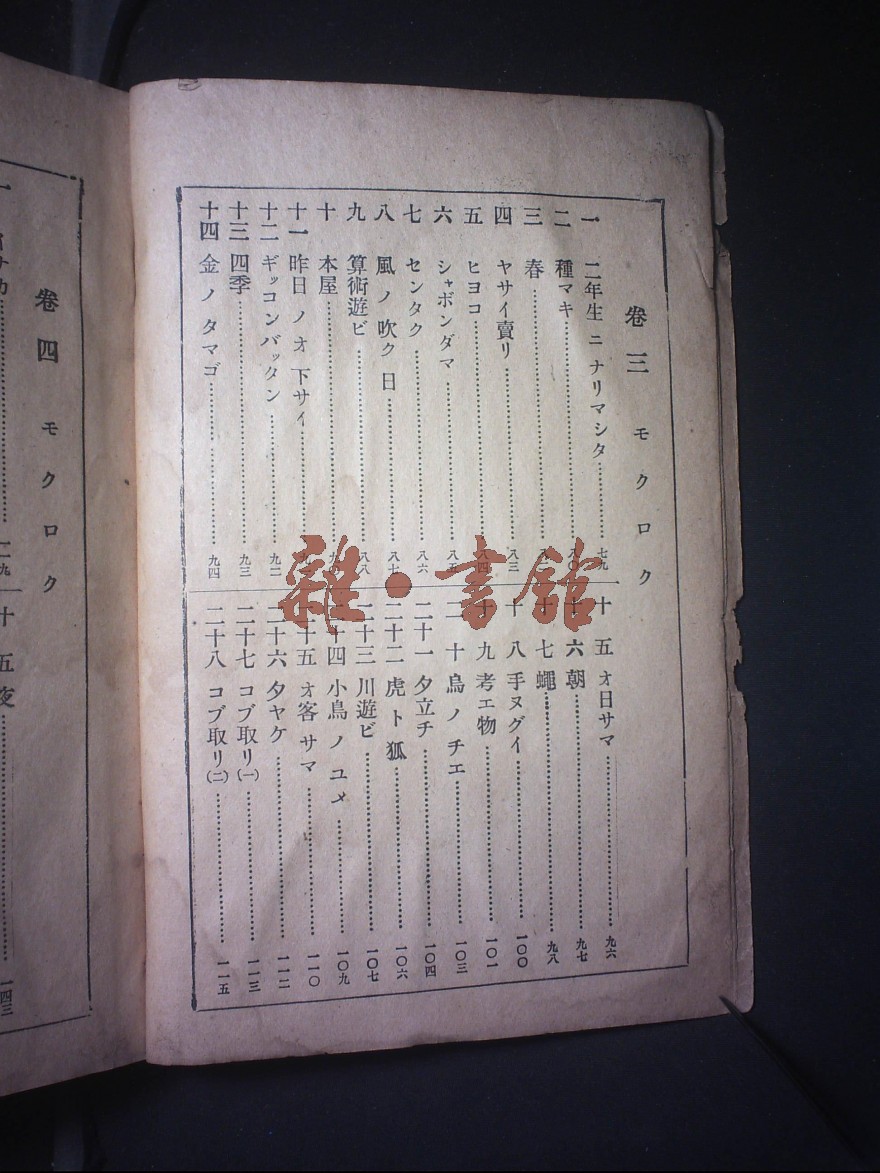 卷三 モクロク
一 二年生 ニ ナリマシタ 七九
二 種マキ 八〇
三 春
四 ヤサイ賣リ 八三
五 ヒヨコ 八四
六 シャボンダマ 八五
七 センタク 八六
八 風ノ吹ク日 八七
九 算術遊ビ 八八
十 本屋
十一 昨日 ノ オ 下サイ
十二 ギッコンバッタン 九二
十三 四季 九三
十四 金ノタマゴ 九四
十五 オ日サマ 九六
十六 朝 九七
十七 蠅 九八
十八 手ヌグイ 一〇〇
十九 考エ物 一〇一
二十 鳥ノチエ 一〇三
二十一 夕立チ 一〇四
二十二 虎ト狐 一〇六
二十三 川遊ビ 一〇七
二十四 小鳥ノユメ 一〇九
二十五 オ客サマ 一一〇
二十六 夕ヤケ 一一二
二十七 コブ取リ(一) 一一三
二十八 コブ取リ(二) 一一五
卷四 モクロク
一九
十五夜
一四三
雜·書館